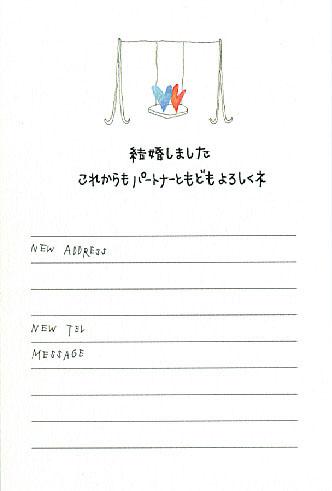 結婚しました
これからもパートナーともどもよろしくネ
NEW ADDRESS
NEW TEL
MESSAGE